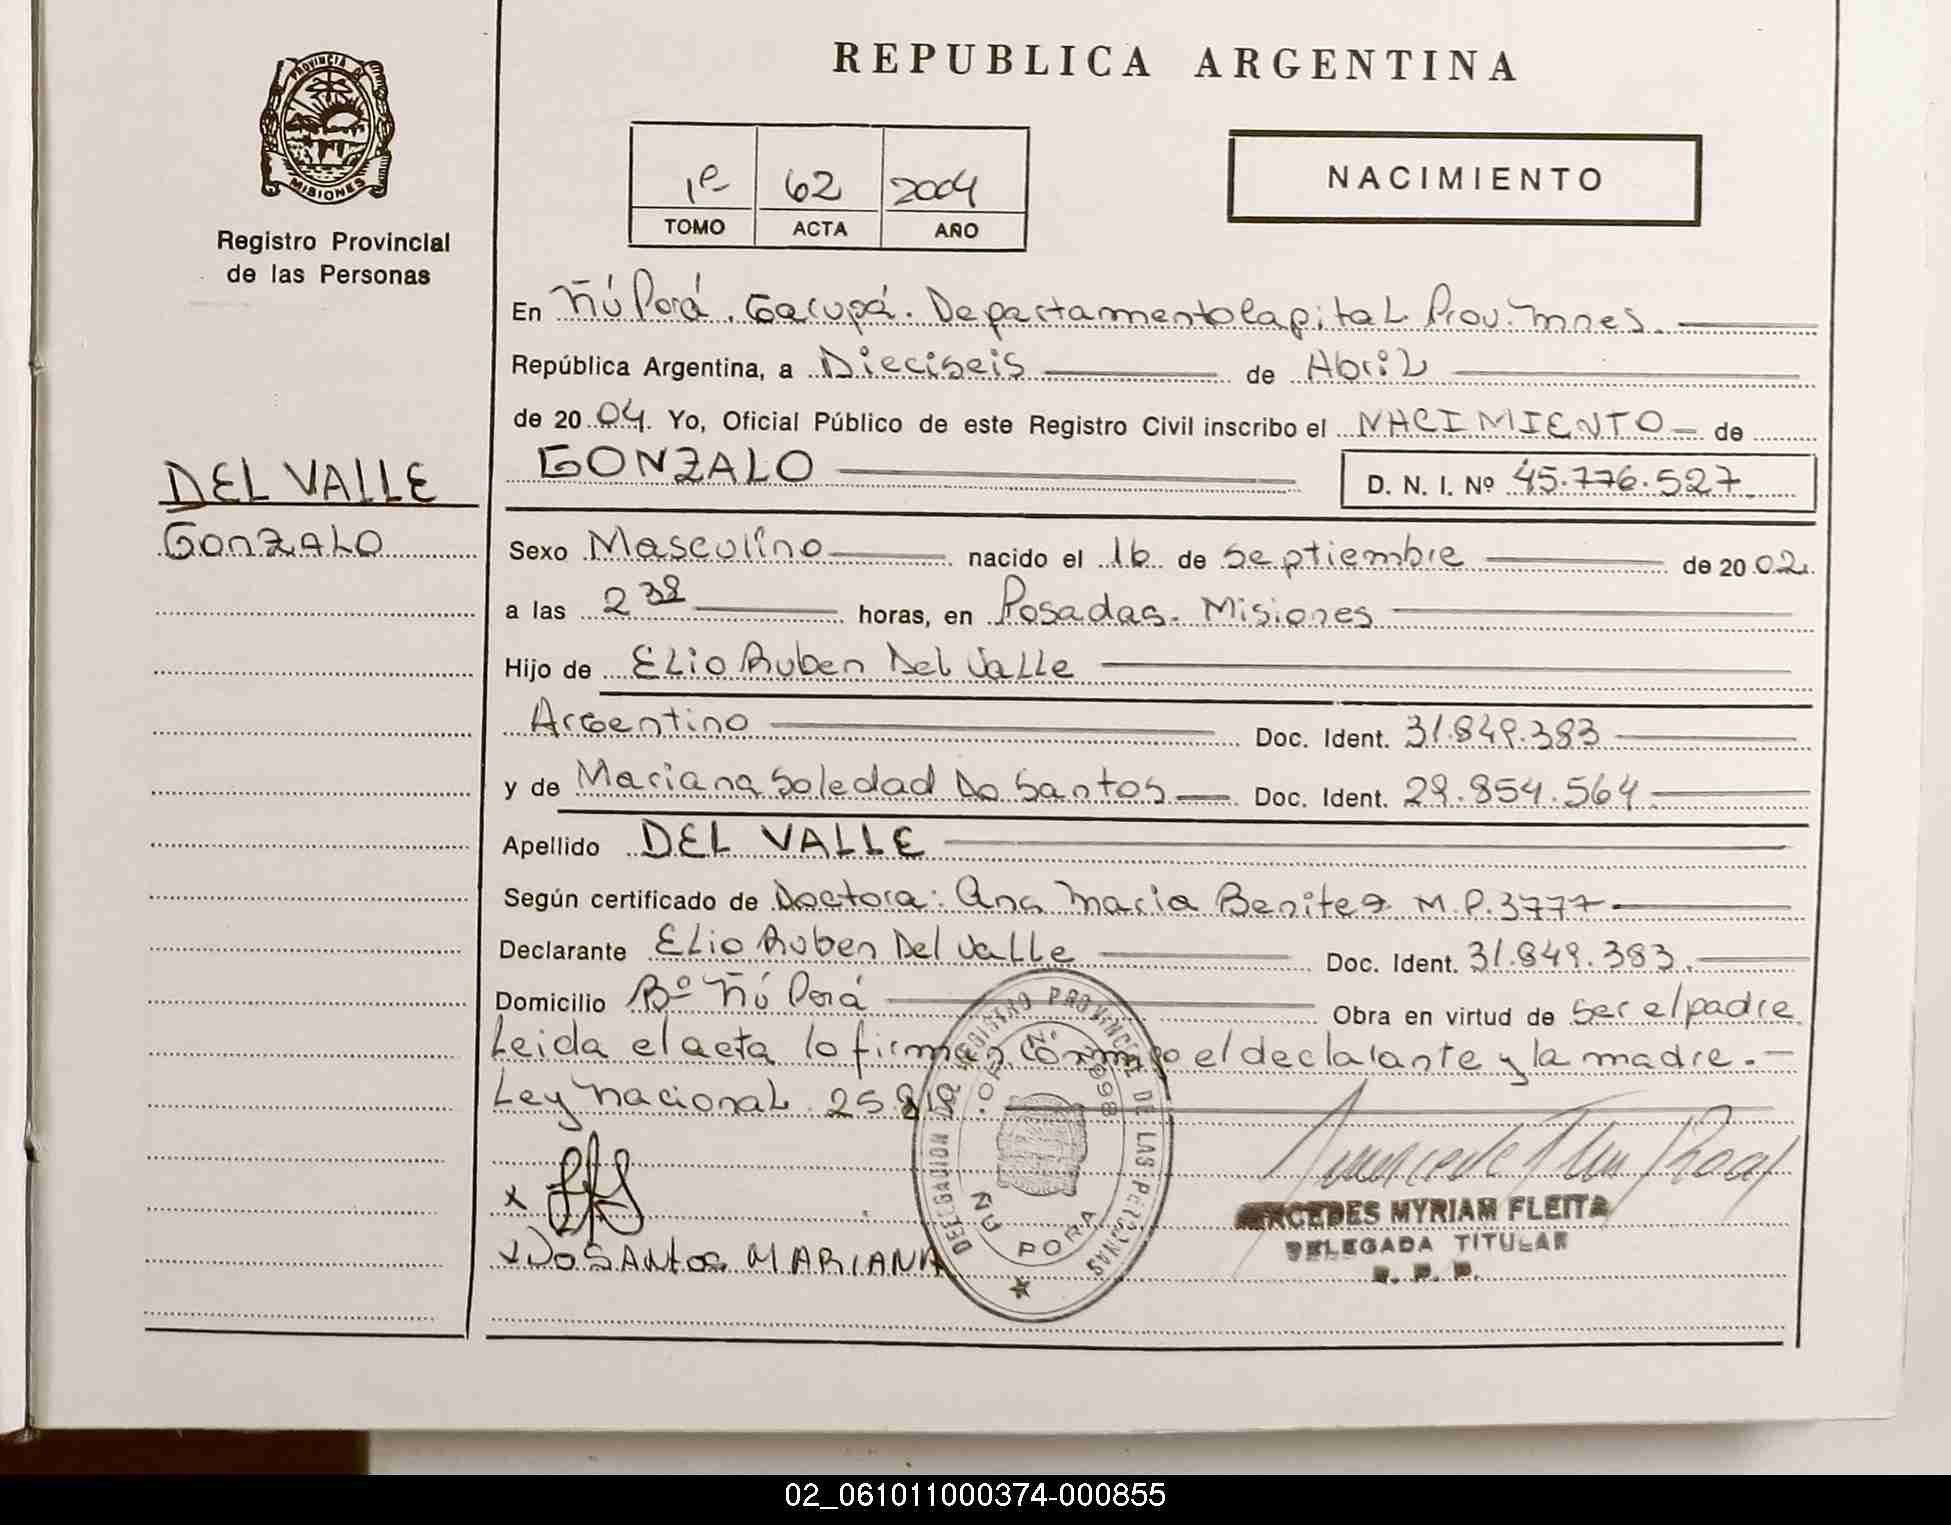 PROVINCIA DE
MISIONES
Registro Provincial
de las Personas
DEL VALLE
GONZALO
REPUBLICA ARGENTINA
1º 62 2004
TOMO ACTA AÑO
NACIMIENTO
En Ñú Porá. Garupá. Departamento Capital Prov. Mnes.
República Argentina, a Dieciseis de Abril
de 2004. Yo, Oficial Público de este Registro Civil inscribo el NACIMIENTO de
GONZALO D. N. I. Nº 45.776.527
Sexo Masculino nacido el 16 de Septiembre de 2002.
a las 2 38 horas, en Posadas. Misiones
Hijo de Elio Ruben Del Valle
Argentino Doc. Ident. 31.849.383
y de Mariana Soledad Do Santos Doc. Ident. 29.854.564
Apellido DEL VALLE
Según certificado de Doctora: Ana Maria Benitez M.P. 3777
Declarante Elio Ruben Del Valle Doc. Ident. 31.849.383.
Domicilio Bº Ñú Porá Obra en virtud de ser el padre
Leida el acta lo firman conmigo el declarante y la madre.
Ley Nacional 25819
x
x Do SANtos MARIANA
DELEGACION DEL REGISTRO PROVINCIAL DE LAS PERSONAS
OF. Nº 2098
ÑU PORA
MERCEDES MYRIAM FLEITA
DELEGADA TITULAR
R. P. P.
02_061011000374-000855